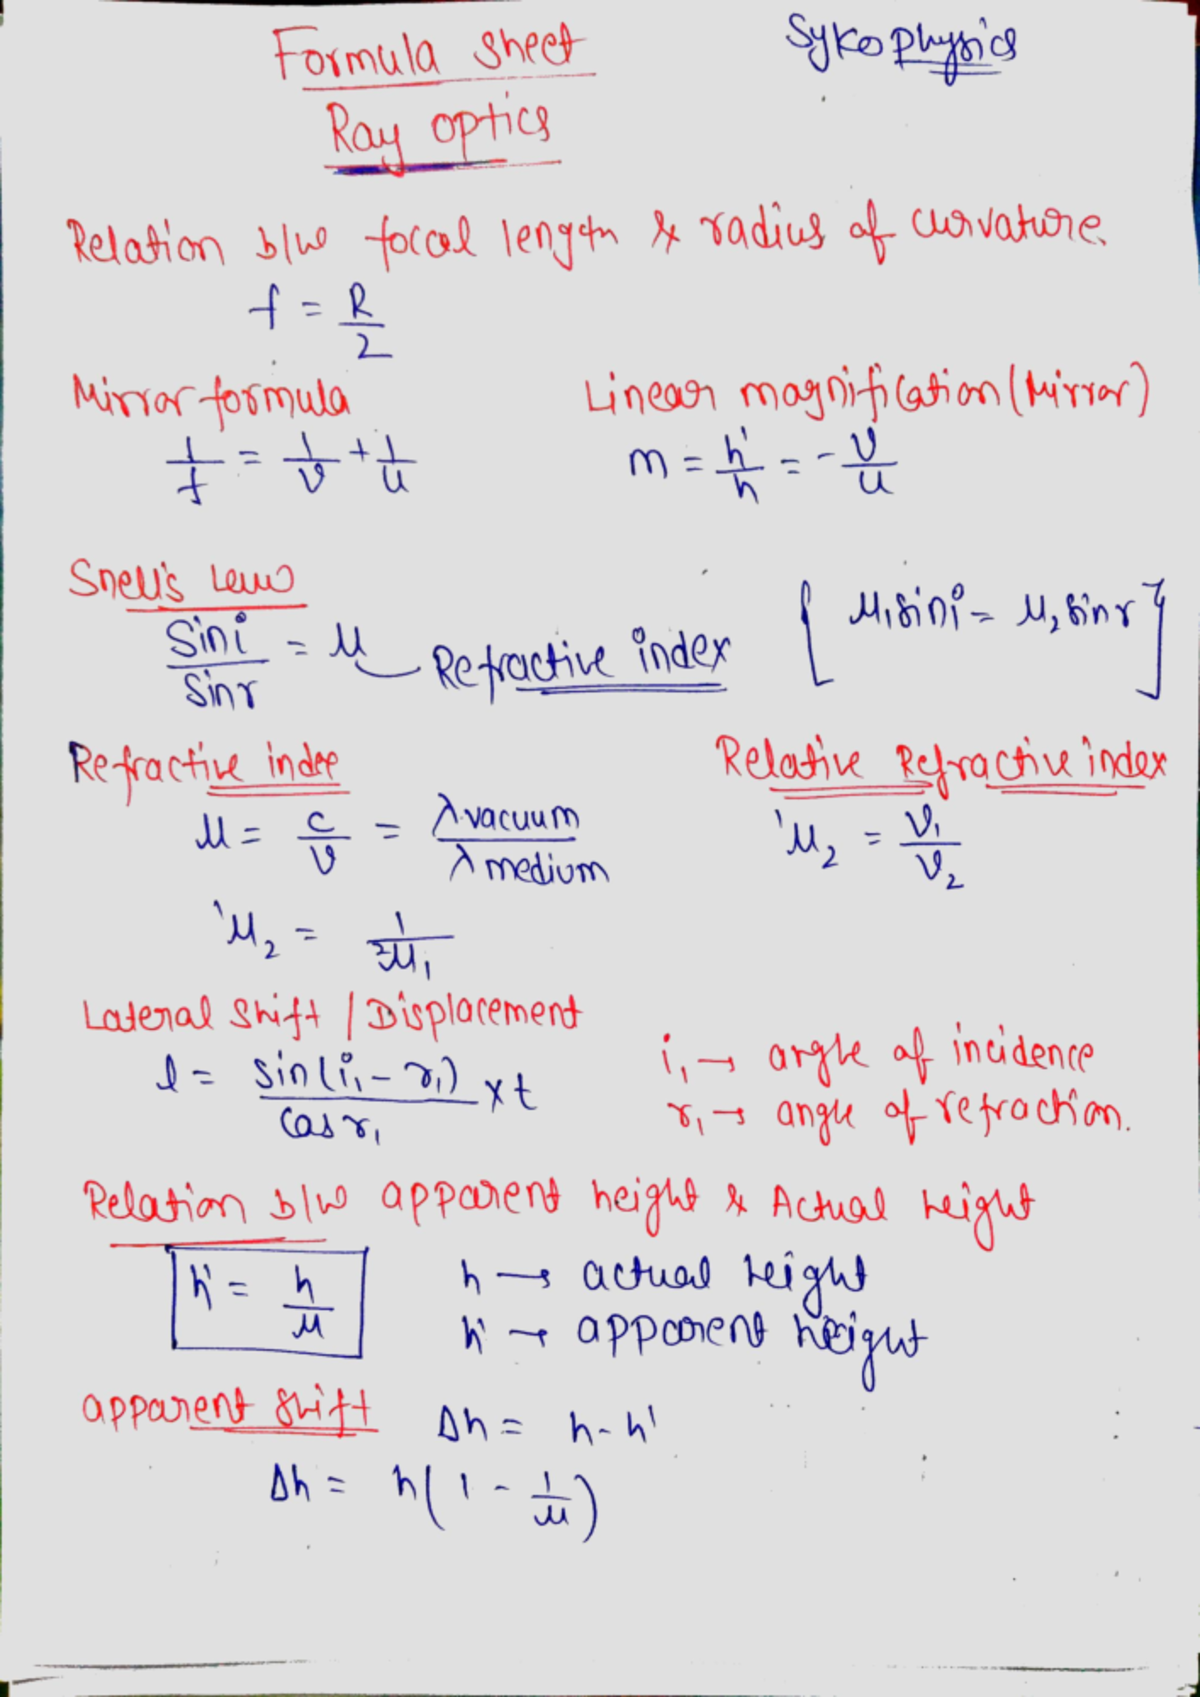 Formula sheet
Sykophysics
Ray optics
Relation b/w foccal length & radius of curvature.
f = R/2
Mirror formula
Linear magnification (Mirror)
1/f = 1/v + 1/u
m = h'/h = -v/u
Snell's Law
Sin i/Sin r = μ Refractive index
[μ₁ sin i = μ₂ sin r]
Refractive inde
Relative Refractive index
μ = c/v = λ vacuum/λ medium
¹μ₂ = v₁/v₂
¹μ₂ = 1/²μ₁
Lateral Shift / Displacement
l = sin(i₁ - r₁)/cos r₁ × t
i₁ → angle of incidence
r₁ → angle of refraction.
Relation b/w apparent height & Actual height
h' = h/μ
h → actual height
h' → apparent height
apparent shift
Δh = h - h'
Δh = h(1 - 1/μ)